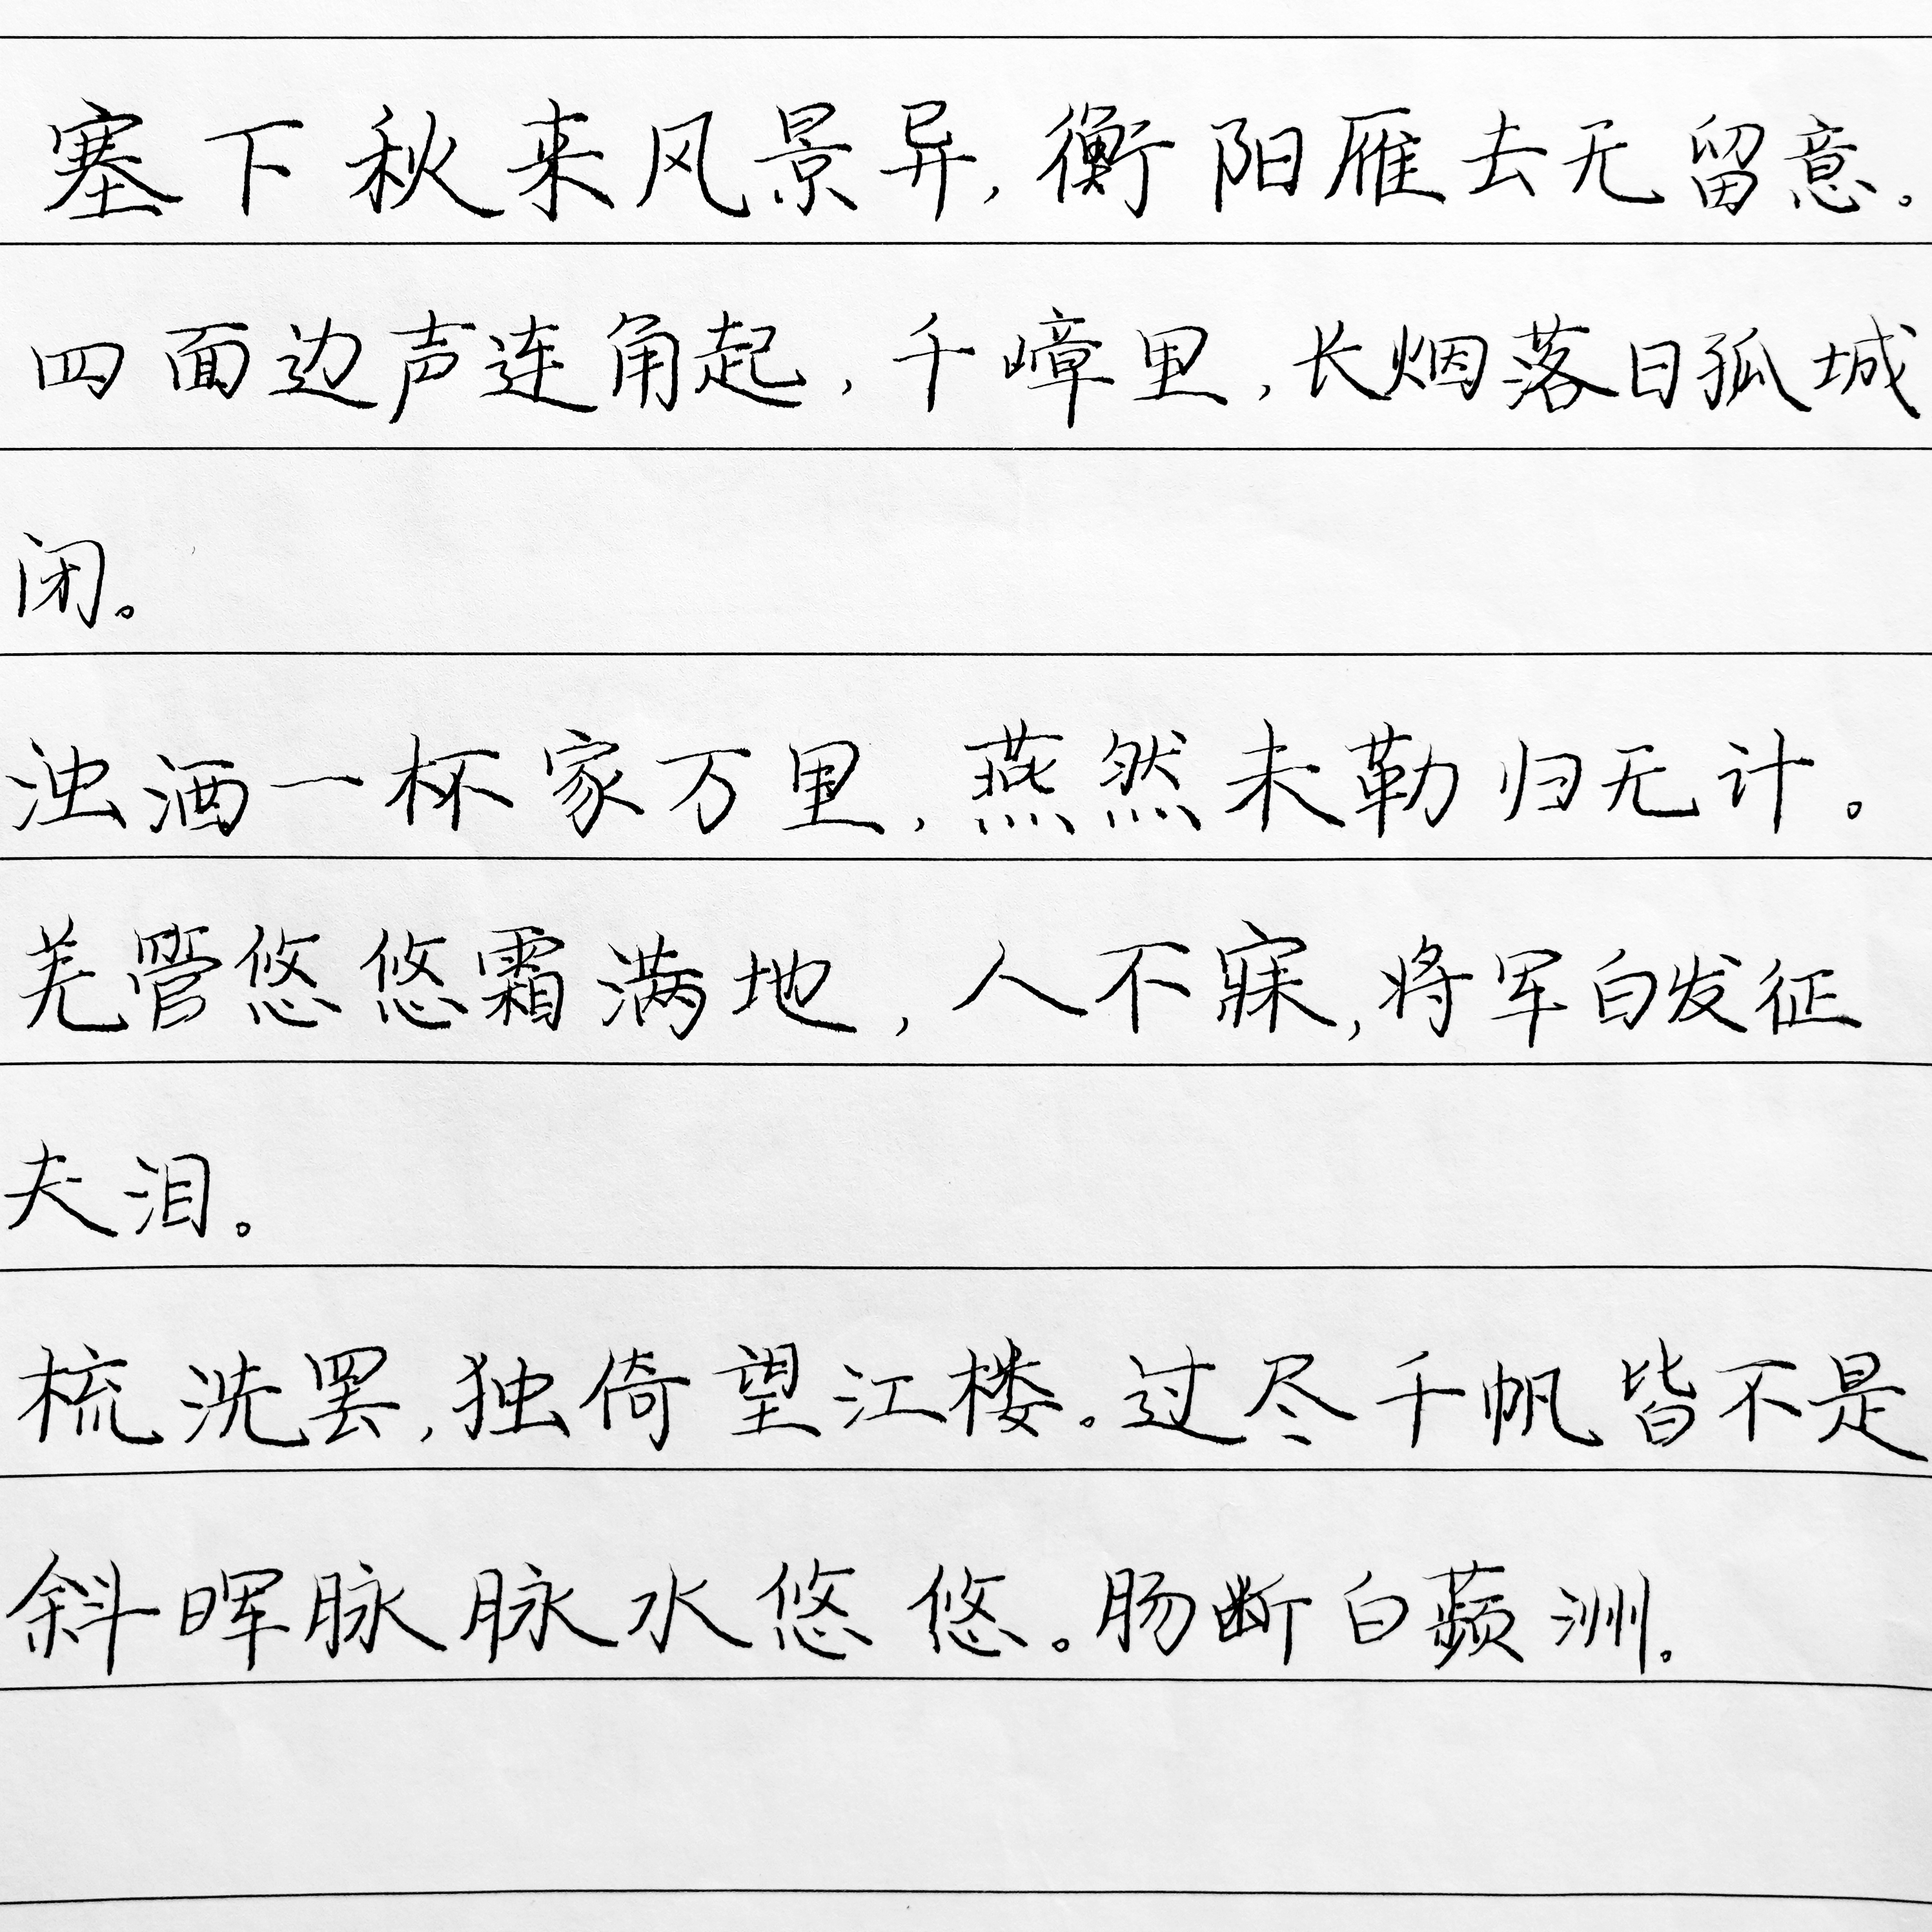 塞下秋来风景异,衡阳雁去无留意。
四面边声连角起,千嶂里,长烟落日孤城
闭。
浊酒一杯家万里,燕然未勒归无计。
羌管悠悠霜满地,人不寐,将军白发征
夫泪。
梳洗罢,独倚望江楼。过尽千帆皆不是
斜晖脉脉水悠悠。肠断白蘋洲。